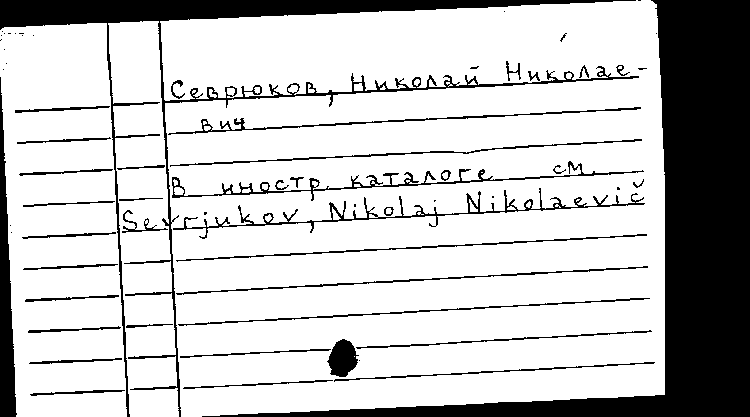 Севрюков, Николай Николае-
вич
В иностр. каталоге см.
Sevrjukov, Nikolaj Nikolaevič